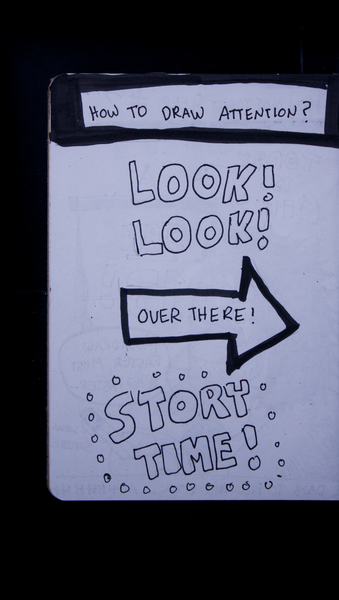 HOW TO DRAW ATTENTION?
LOOK!
LOOK!
OVER THERE!
STORY
TIME!